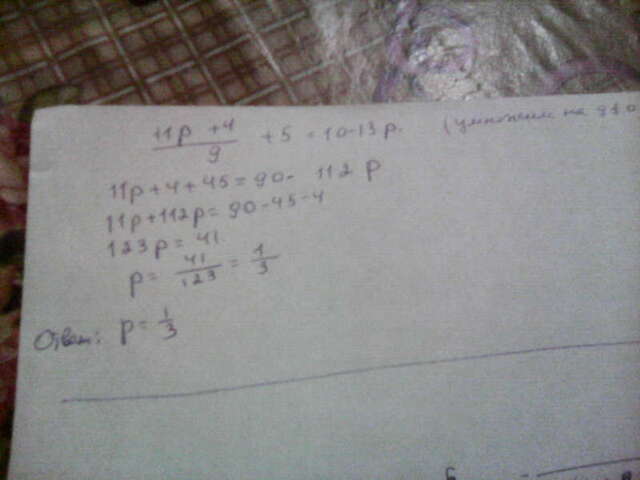 11p + 4 / 9 + 5 = 10 - 13p. (умножим на 9
11p + 4 + 45 = 90 - 112p
11p + 112p = 90 - 45 - 4
123p = 41
p = 41/123 = 1/3
Ответ: p = 1/3